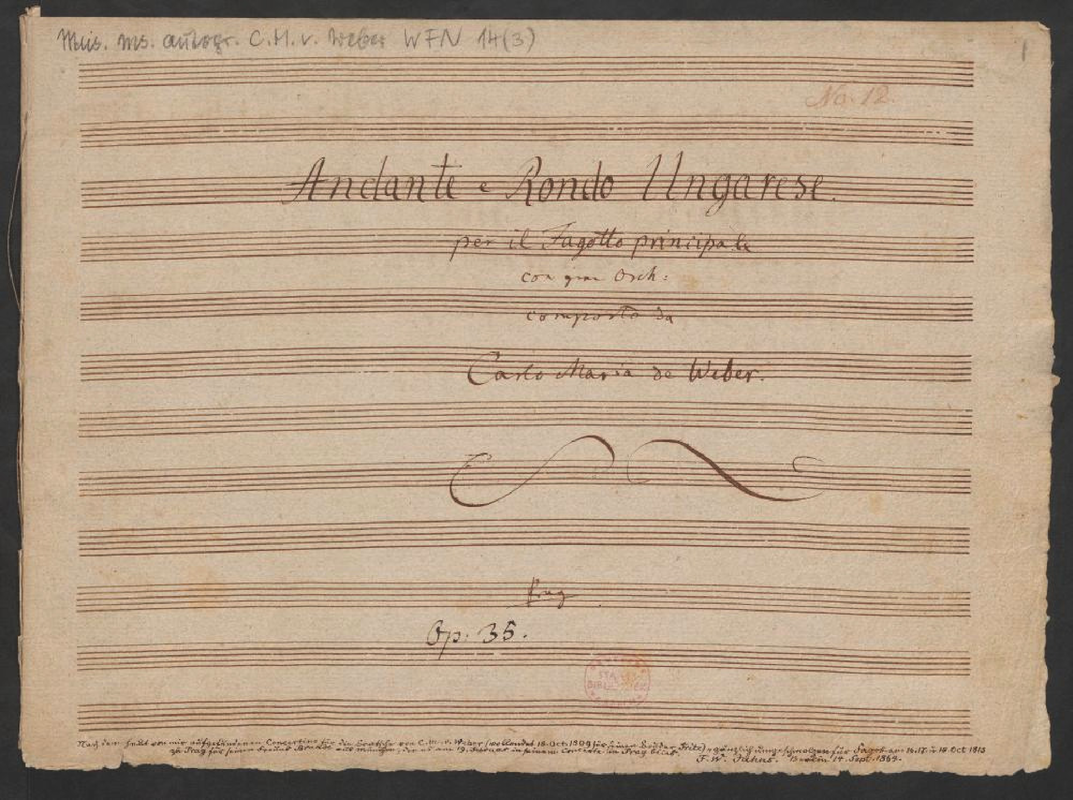 Mus. ms. autogr. C. M. v. Weber WFN 14(3)
1
No. 12.
Andante e Rondo Ungarese.
per il Fagotto principale
con gran Orch:
composto da
Carlo Maria de Weber.
Prag
Op: 35.
Nach dem heute von mir aufgefundenen Concertino für die Bratsche von C. M. v. Weber (vollendet 18. Oct. 1809 für seinen Bruder Fritz) gänzlich umgeschmolzen für Fagott am 14. 17. u 18 Oct 1813
zu Prag für seinen Freund Brandt aus München, der es am 19. Februar in seinem Concerte in Prag blies.
F. W. Jähns. Berlin 14. Sept. 1864.